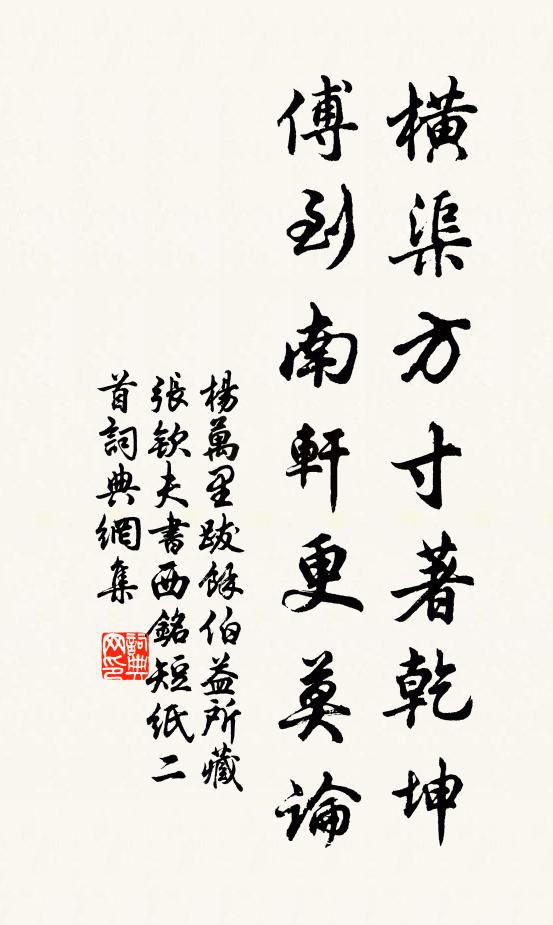 橫渠方寸著乾坤
傅到南軒更莫論
楊萬里跋餘伯益所藏
張欽夫書西銘短紙二
首詞典網集
詞典网印